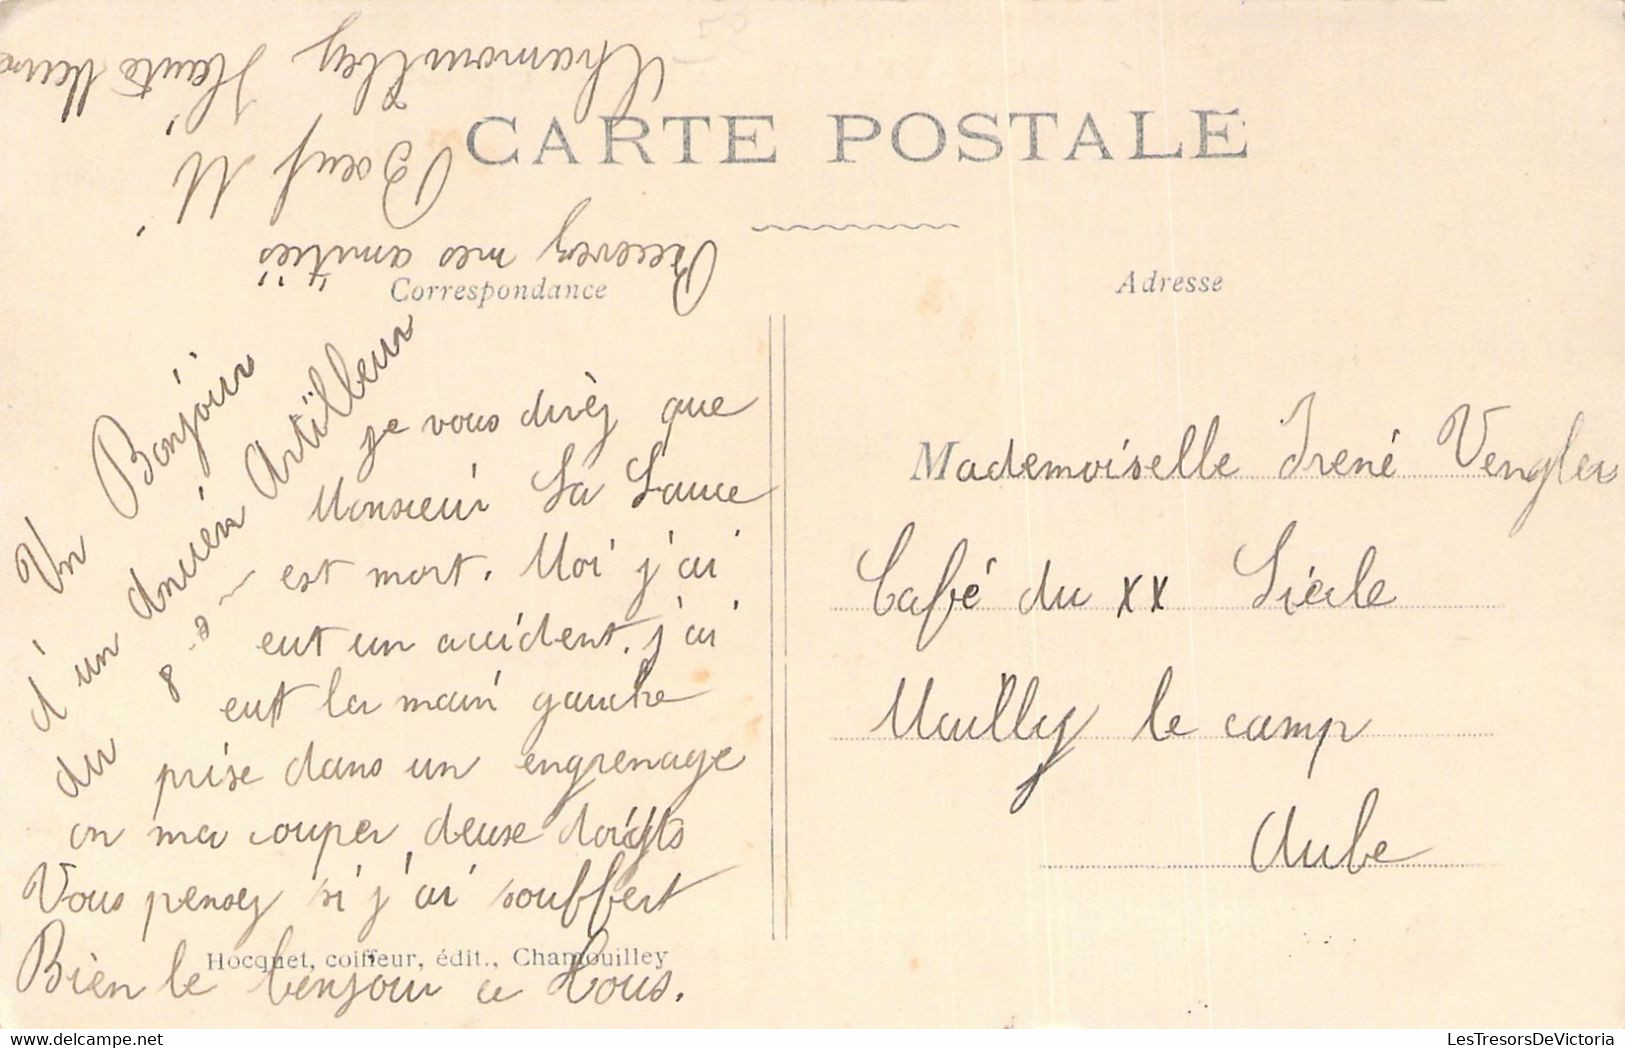 CARTE POSTALE
Correspondance
Adresse
Un Bonjour
d'un Ancien Artilleur
du 8
je vous dirèz que
Monsieur La Sauce
est mort. Moi j'ai
eut un accident. j'ai
eut la main gauche
prise dans un engrenage
on ma couper deuse doigts
Vous pensez si j'ai souffert
Bien le bonjour a Tous.
Recevez mes amitiés
Boeuf M
Chamouilley Haute Marne
Mademoiselle Irené Vengler
Café du XX Siécle
Mailly le camp
Aube
Hocquet, coiffeur, édit., Chamouilley
LesTresorsDeVictoria